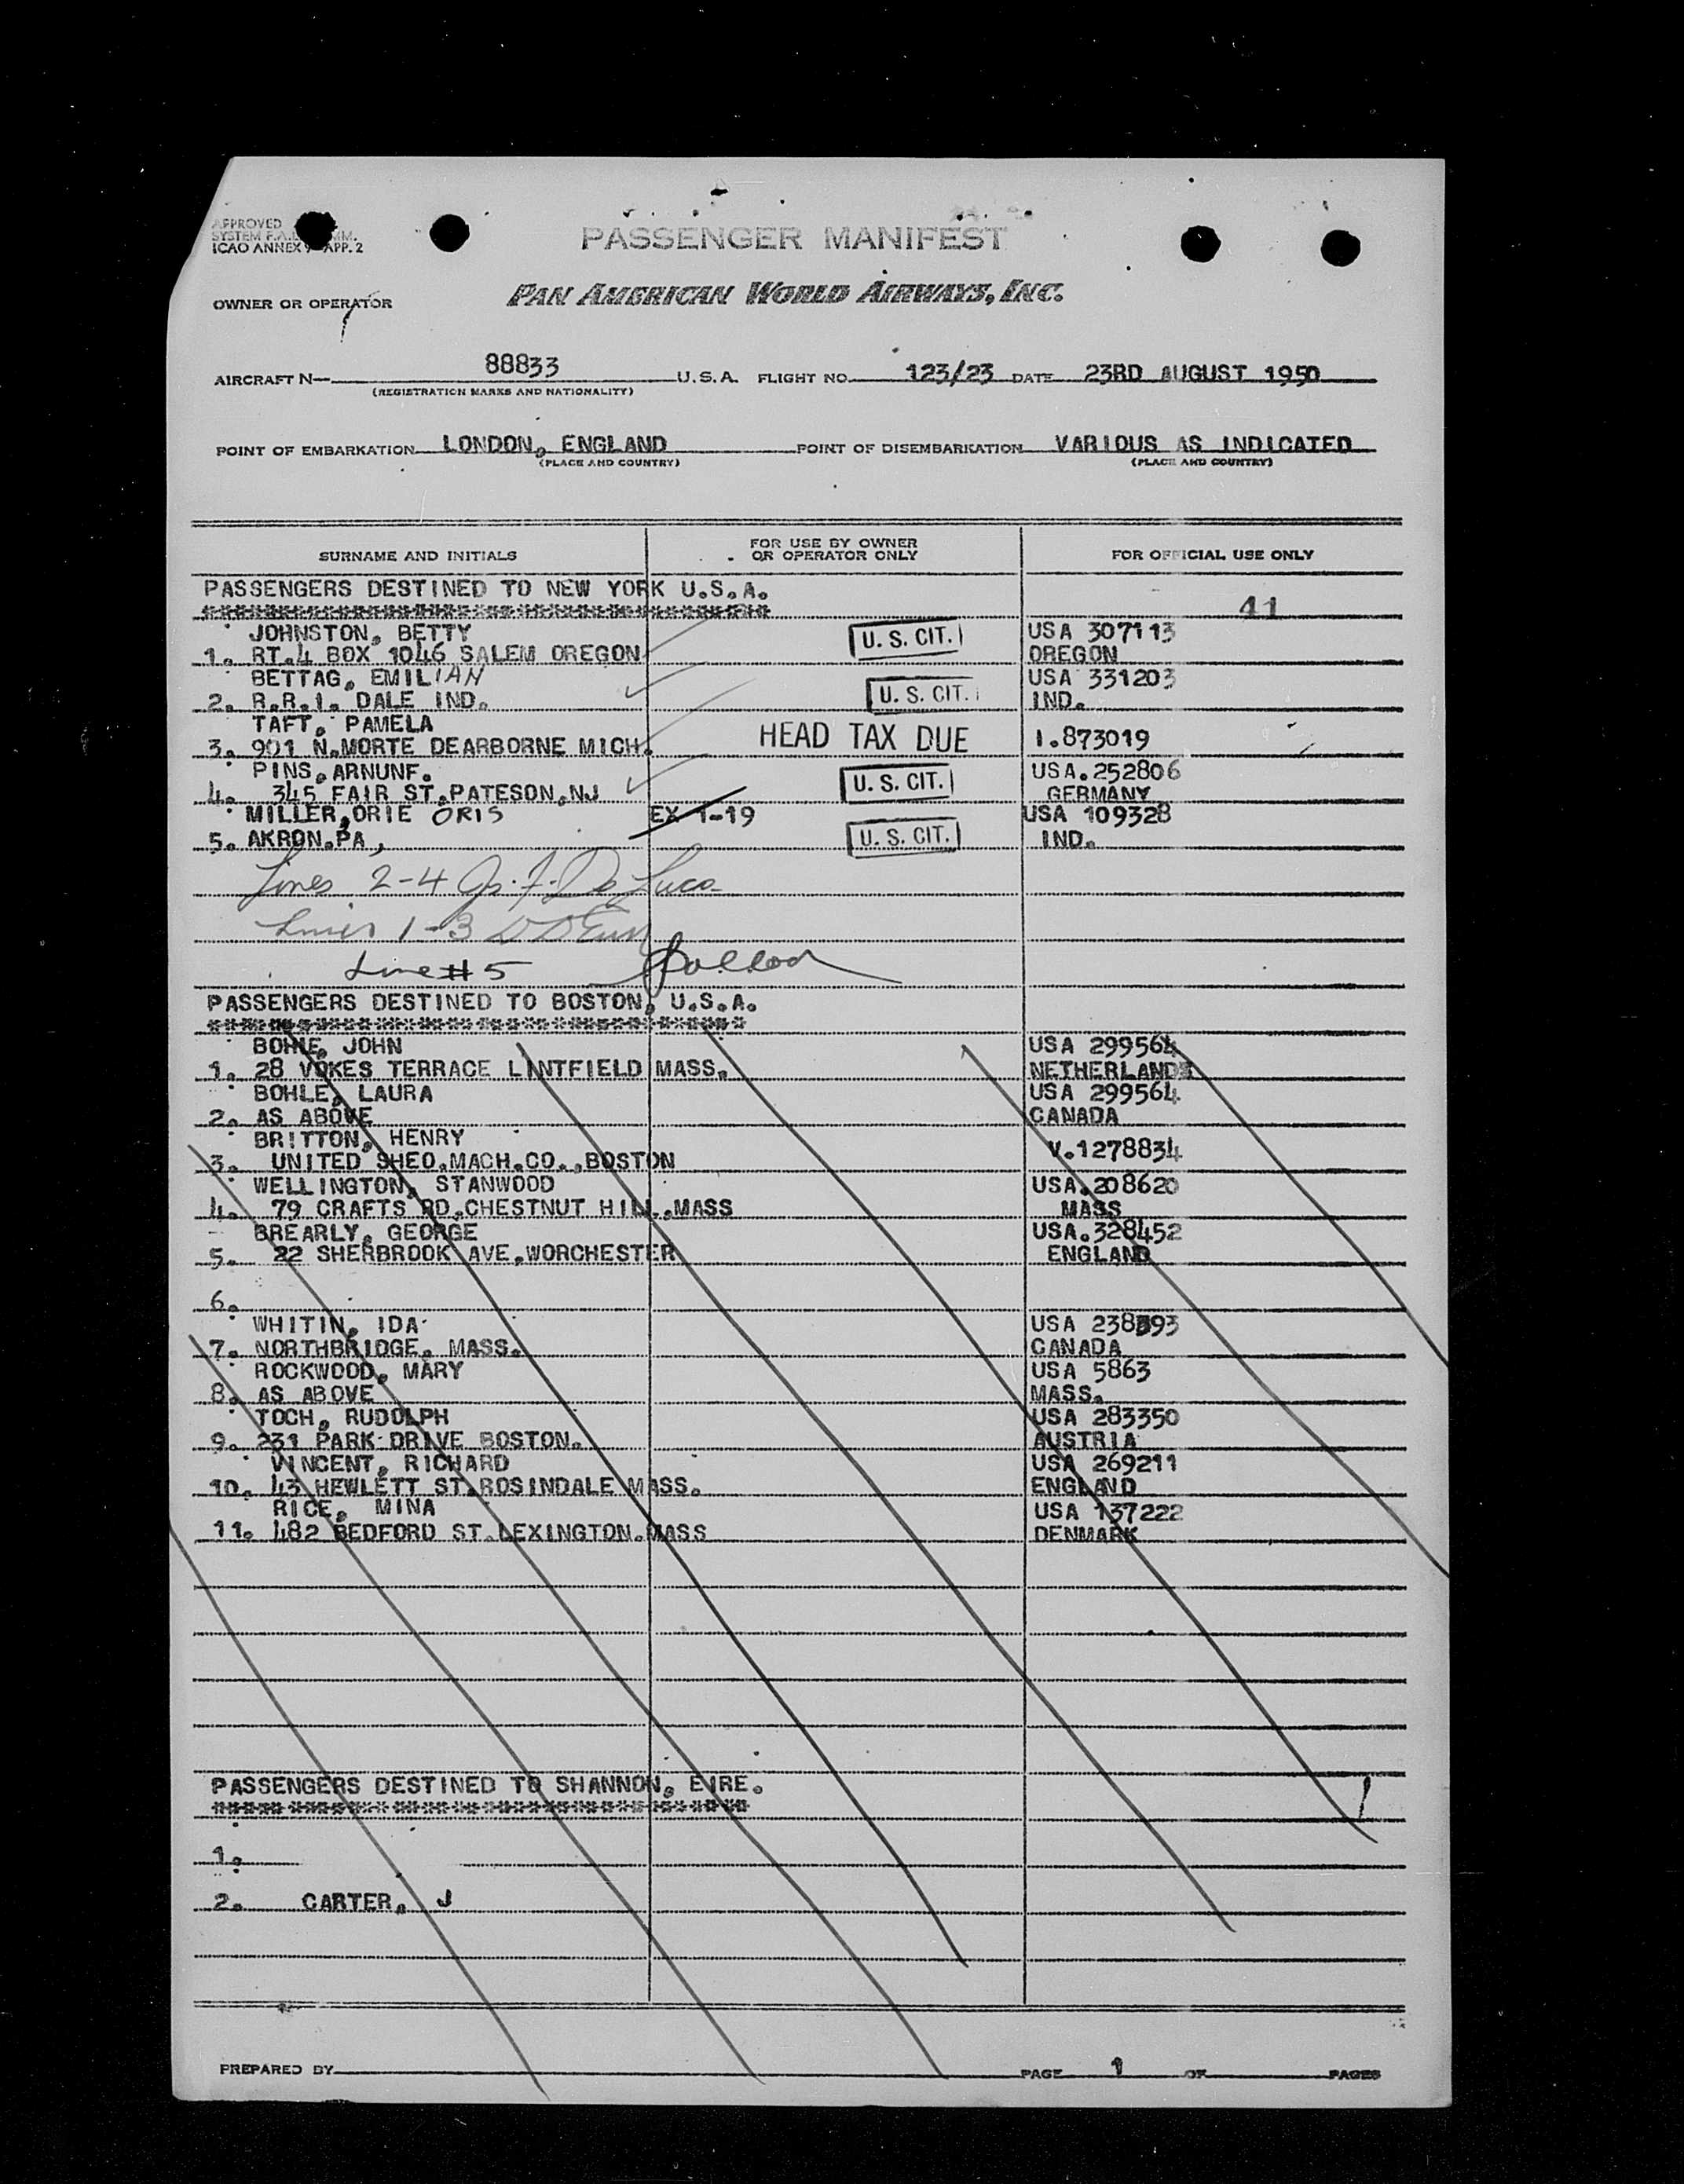 APPROVED
SYSTEM F.A.L. COMM.
ICAO ANNEX 9 APP. 2
PASSENGER MANIFEST
OWNER OR OPERATOR PAN AMERICAN WORLD AIRWAYS, INC.
AIRCRAFT N— 88833 U.S.A. FLIGHT NO. 123/23 DATE 23RD AUGUST 1950
(REGISTRATION MARKS AND NATIONALITY)
POINT OF EMBARKATION LONDON, ENGLAND POINT OF DISEMBARKATION VARIOUS AS INDICATED
(PLACE AND COUNTRY) (PLACE AND COUNTRY)
SURNAME AND INITIALS FOR USE BY OWNER OR OPERATOR ONLY FOR OFFICIAL USE ONLY
PASSENGERS DESTINED TO NEW YORK U.S.A.
41
JOHNSTON, BETTY U. S. CIT. USA 307113
1. RT.4 BOX 1046 SALEM OREGON OREGON
BETTAG, EMILIAN USA 331203
2. R.R.1. DALE IND. U. S. CIT. IND.
TAFT, PAMELA
3. 901 N.MORTE DEARBORNE MICH. HEAD TAX DUE 1.873019
PINS, ARNUNF. USA.252806
4. 345 FAIR ST.PATESON,NJ U. S. CIT. GERMANY
MILLER,ORIE ORIS EX 1-19 USA 109328
5. AKRON.PA, U. S. CIT. IND.
Lines 2-4 Js. F. De Luca
Lines 1-3
Line # 5
PASSENGERS DESTINED TO BOSTON, U.S.A.
BOHLE, JOHN USA 299564
1. 28 VOKES TERRACE LINTFIELD MASS. NETHERLANDS
BOHLE, LAURA USA 299564
2. AS ABOVE CANADA
BRITTON, HENRY V.1278834
3. UNITED SHEO.MACH.CO.,BOSTON
WELLINGTON, STANWOOD USA.208620
4. 79 CRAFTS RD.CHESTNUT HILL.MASS MASS
BREARLY, GEORGE USA.328452
5. 22 SHERBROOK AVE,WORCHESTER ENGLAND
6.
WHITIN, IDA USA 238893
7. NORTHBRIDGE, MASS. CANADA
ROCKWOOD, MARY USA 5863
8. AS ABOVE MASS.
TOCH, RUDOLPH USA 283350
9. 231 PARK DRIVE BOSTON. AUSTRIA
VINCENT, RICHARD USA 269211
10. 43 HEWLETT ST.ROSINDALE MASS. ENGLAND
RICE, MINA USA 137222
11. 482 BEDFORD ST.LEXINGTON.MASS DENMARK
PASSENGERS DESTINED TO SHANNON, EIRE.
1.
2. CARTER, J
PREPARED BY PAGE 1 OF PAGES